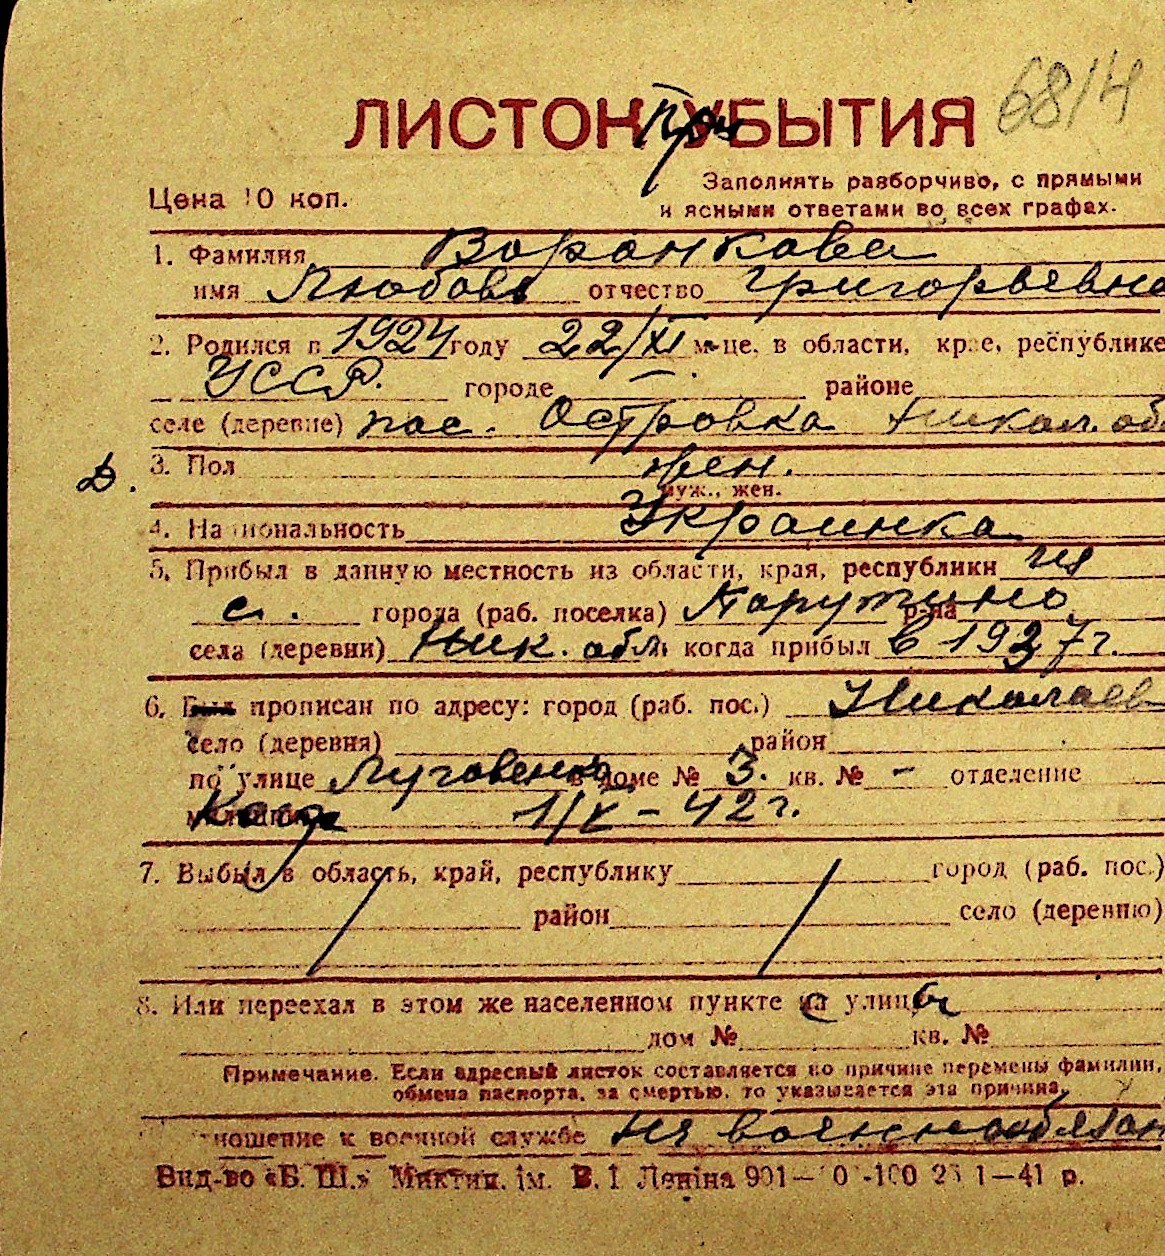 6814
ЛИСТОК УБЫТИЯ
При
Цена 10 коп.
Заполнять разборчиво, с прямыми
и ясными ответами во всех графах.
1. Фамилия Воранкова
имя Любовь отчество Григорьевна
2. Родился в 1924 году 22/XI м-це, в области, крае, республике
УССР. городе — районе
селе (деревне) пос. Островка Никол. об
3. Пол жен.
Д.
муж., жен.
4. Национальность Украинка
5. Прибыл в данную местность из области, края, республики из
с. города (раб. поселка) Парутино р-на
села (деревни) Ник. обл. когда прибыл в 1937 г.
6. Был прописан по адресу: город (раб. пос.) Николаев
село (деревня) район
по улице Луговенко в доме № 3. кв. № – отделение
милиции Когда 1/V – 42 г.
7. Выбыл в область, край, республику город (раб. пос.)
район село (деревню)
8. Или переехал в этом же населенном пункте с улицы
дом № кв. №
Примечание. Если адресный листок составляется по причине перемены фамилии,
обмена паспорта, за смертью, то указывается эта причина.
ношение к военной службе не военнообязан
Вид-во «Б. Ш.» Миктип. ім. В. І Леніна 901— 0 -100 25 1—41 р.